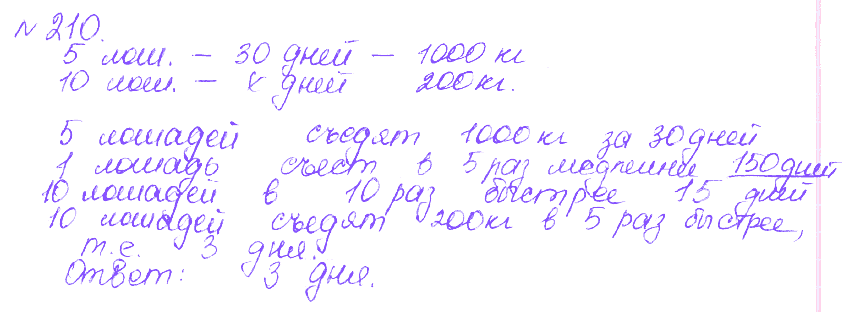 № 210.
5 лош. – 30 дней – 1000 кг
10 лош. – x дней 200 кг.
5 лошадей съедят 1000 кг за 30 дней
1 лошадь съест в 5 раз медленней 150 дней
10 лошадей в 10 раз быстрее 15 дней
10 лошадей съедят 200 кг в 5 раз быстрее,
т.е. 3 дня.
Ответ: 3 дня.